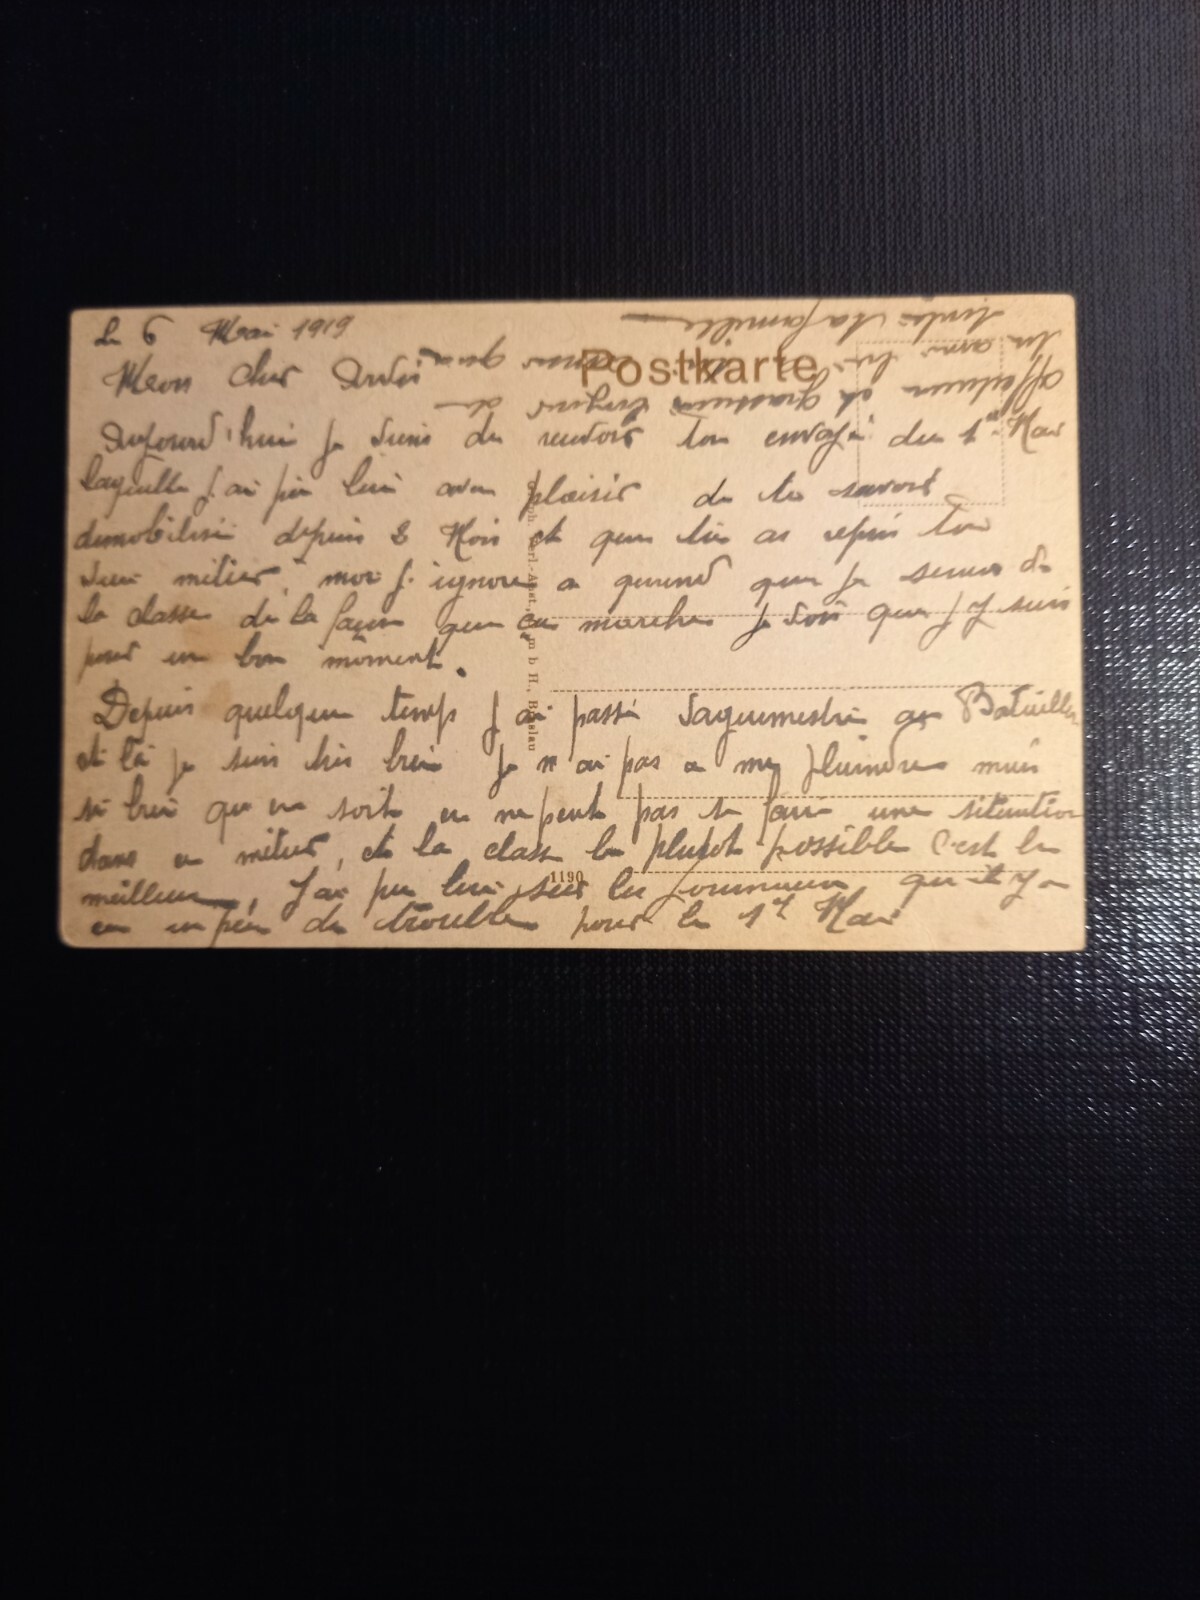 Le 6 Mai 1919
Postkarte
Mon cher
Aujourd'hui je viens de recevoir ton envoyé du 1er Mai
laquelle j ai pu lire avec plaisir de te savoir
demobilisé depuis 2 Mois et que tu as repris ton
metier, moi j. ignore a quand que je serai de
la classe de la façon que ca marche je vois que j y suis
pour un bon moment.
Depuis quelque temps j ai passé Vaguemestre au Bataillon
et la je suis tres bien je n ai pas a me plaindre mais
si bien qu on soit on ne peut pas se faire une situation
dans ce métier, et la classe le plutot possible c'est le
meilleur, J'ai pu lire sur les journaux qu il y a
eu un peu de trouble pour le 1er Mai
affection et
ton ami
toute ta famille
1190